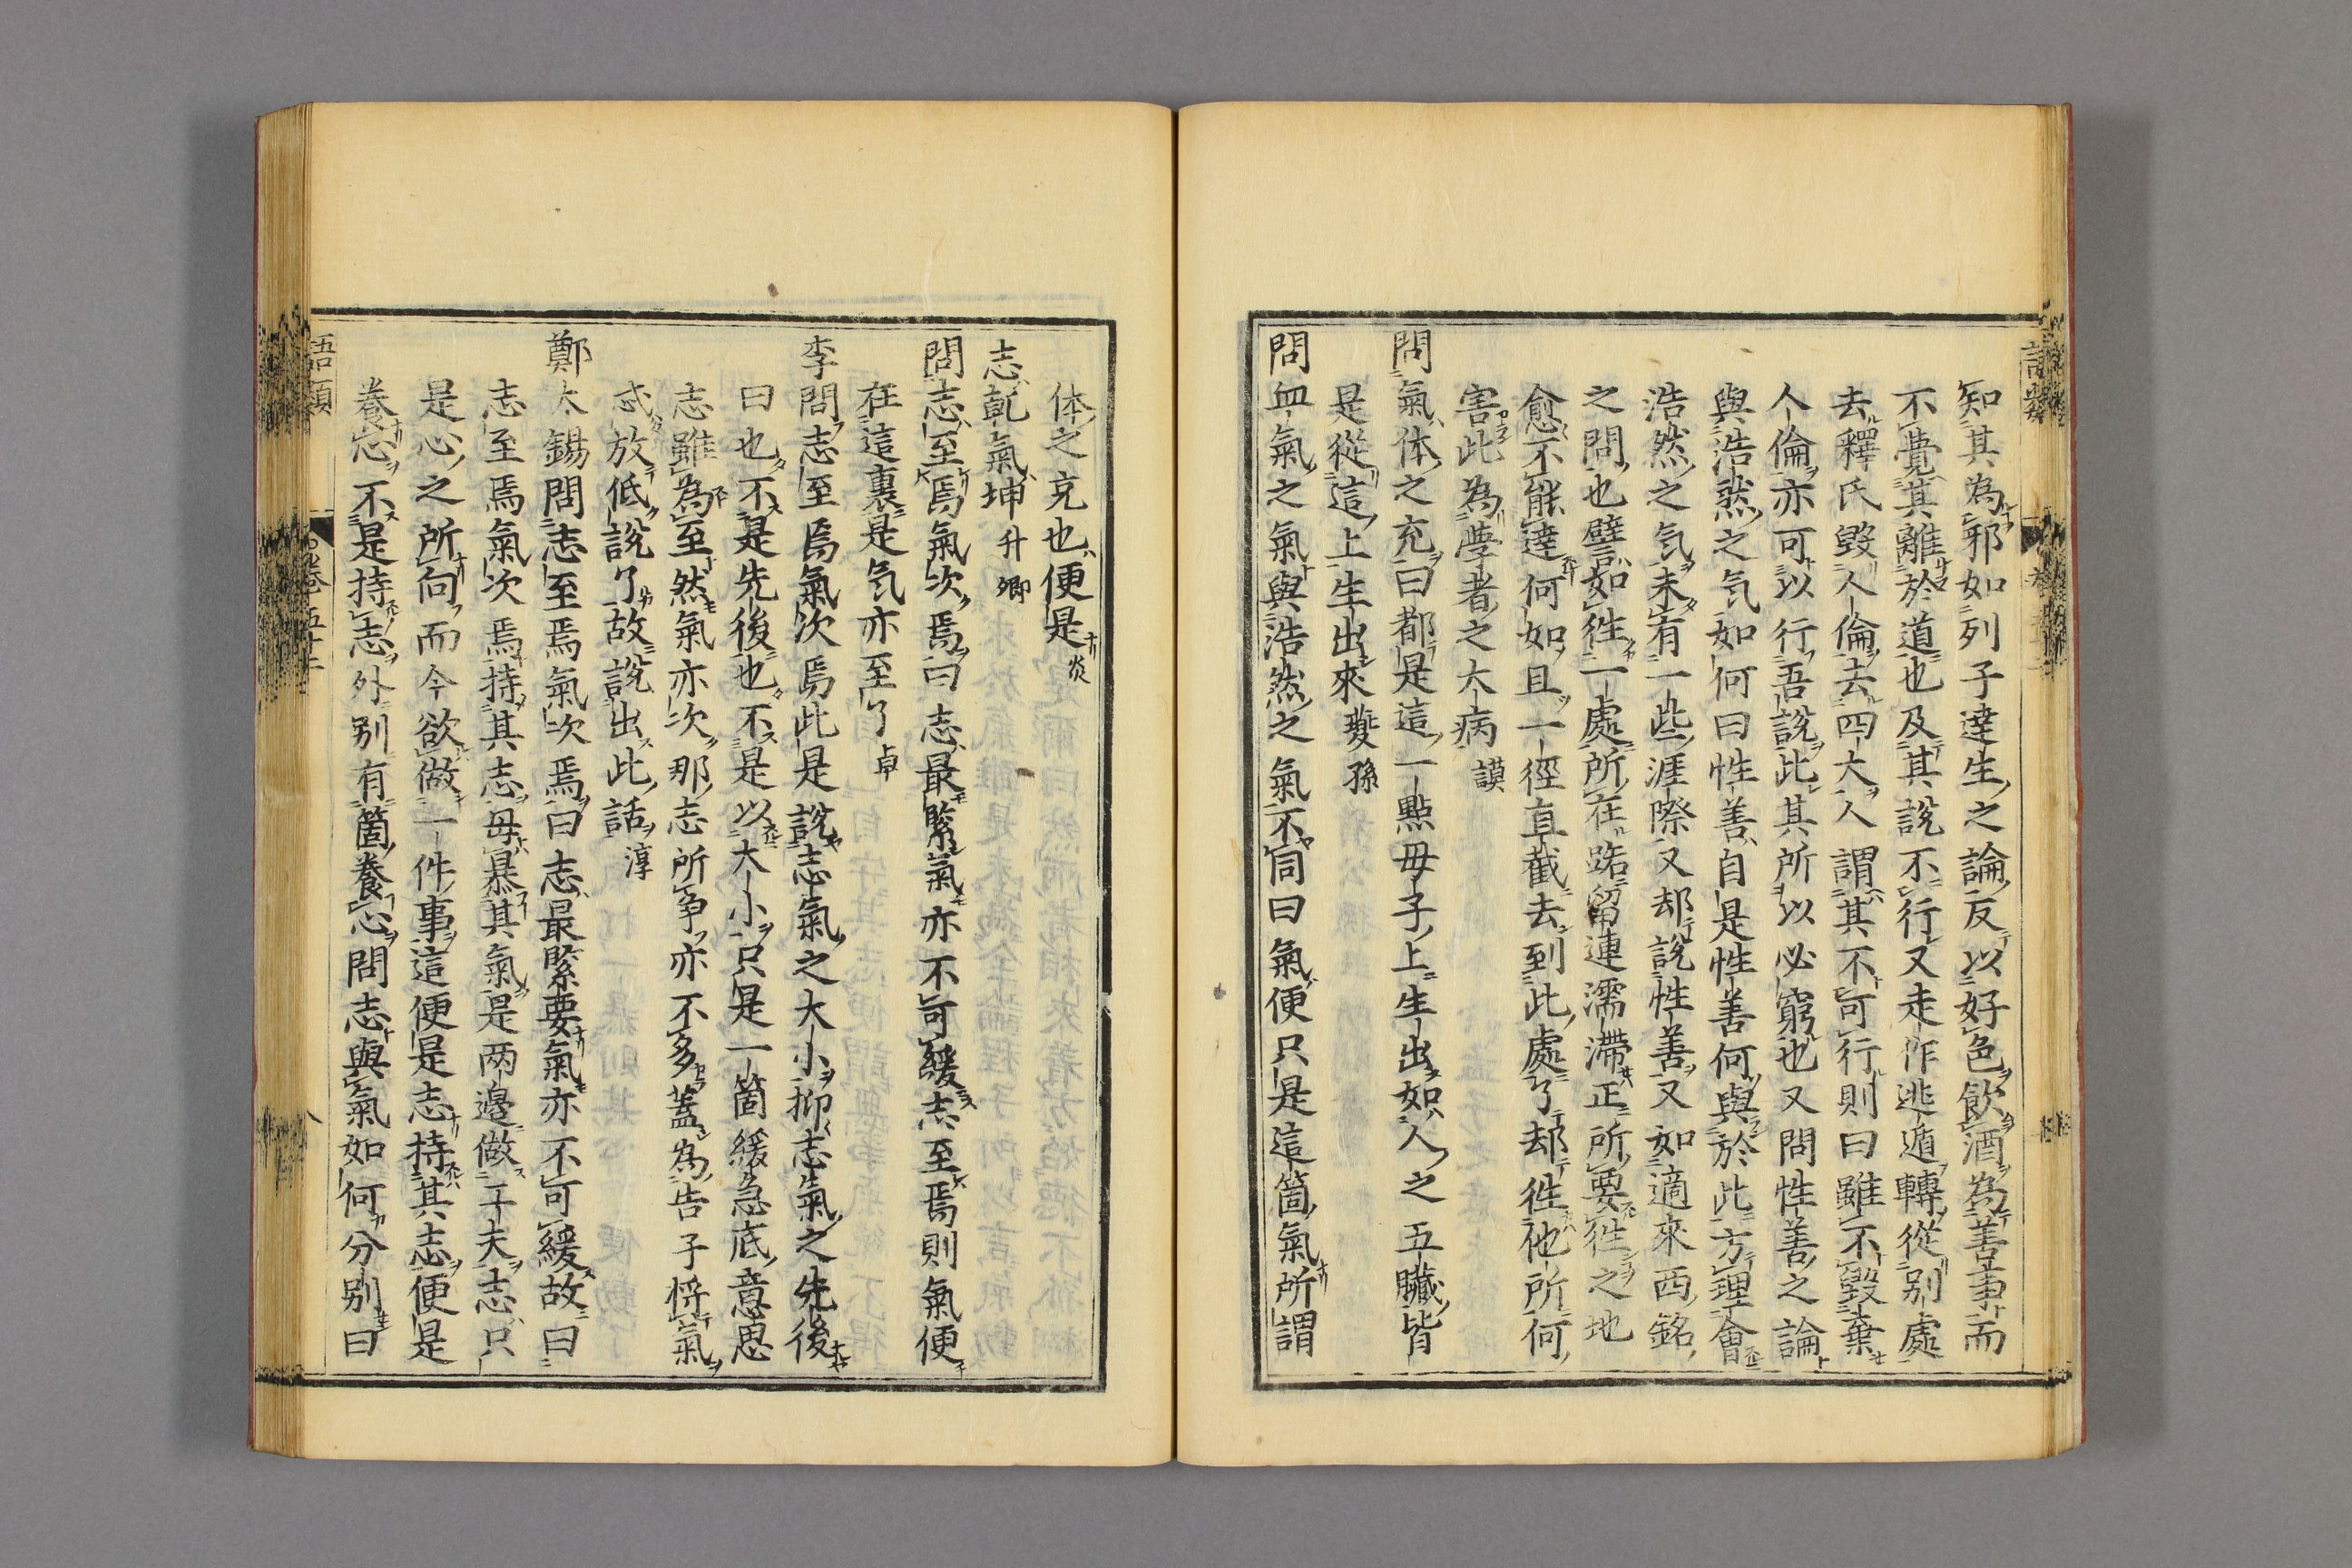 知其為邪如列子達生之論反以好色飲酒為善事而
不覺其離於道也及其說不行又走作逃遁轉從別處
去釋氏毀人倫去四大人謂其不可行則曰雖不毀棄
人倫亦可以行吾說此其所以必窮也又問性善之論
與浩然之气如何曰性善自是性善何與於此方理會
浩然之气未有一些涯際又却說性善又如適來西銘
之問也譬如徃一處所在路留連濡滯正所要徃之地
愈不能達何如且一徑直截去到此處了却徃他所何
害此為學者之大病 謨
問氣体之充曰都是這一點母子上生出如人之五臟皆
是從這上生出來 夔孫
問血氣之氣與浩然之氣不同曰氣便只是這箇氣所謂
体之充也便是 炎
志乾氣坤 升卿
問志至焉氣次焉曰志最緊氣亦不可緩志至焉則氣便
在這裏是气亦至了 卓
李問志至焉氣次焉此是說志氣之大小抑志氣之先後
曰也不是先後也不是以大小只是一箇緩急底意思
志雖為至然氣亦次那志所爭亦不多蓋為告子將氣
忒放低說了故說出此話 淳
鄭太錫問志至焉氣次焉曰志最緊要氣亦不可緩故曰
志至焉氣次焉持其志毋暴其氣是两邊做工夫志只
是心之所向而今欲做一件事這便是志持其志便是
養心不是持志外別有箇養心問志與氣如何分別曰
語類
卷五十二